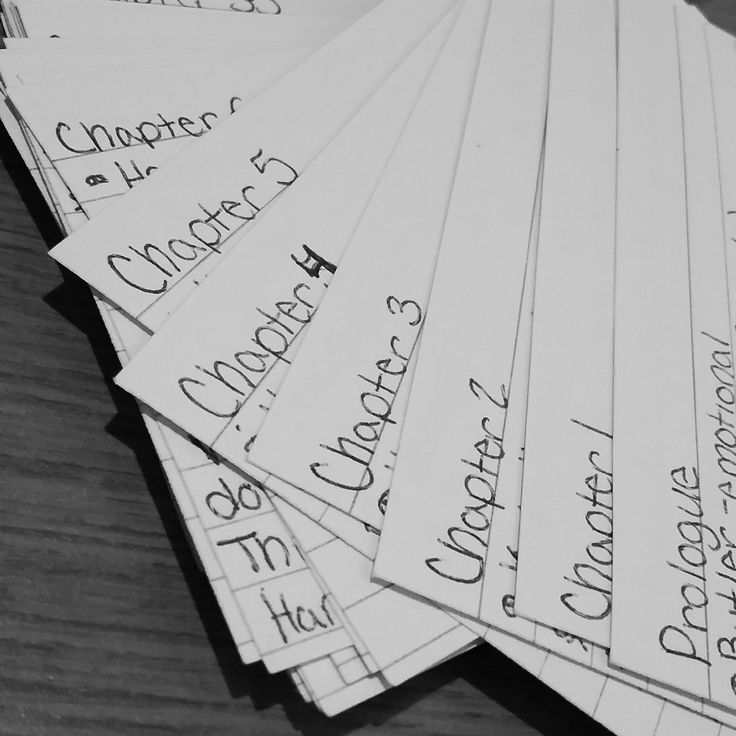 Chapter
Chapter 5
Chapter 4
Chapter 3
Chapter 2
Chapter 1
Prologue
Butler - emotional
do
Th
Har